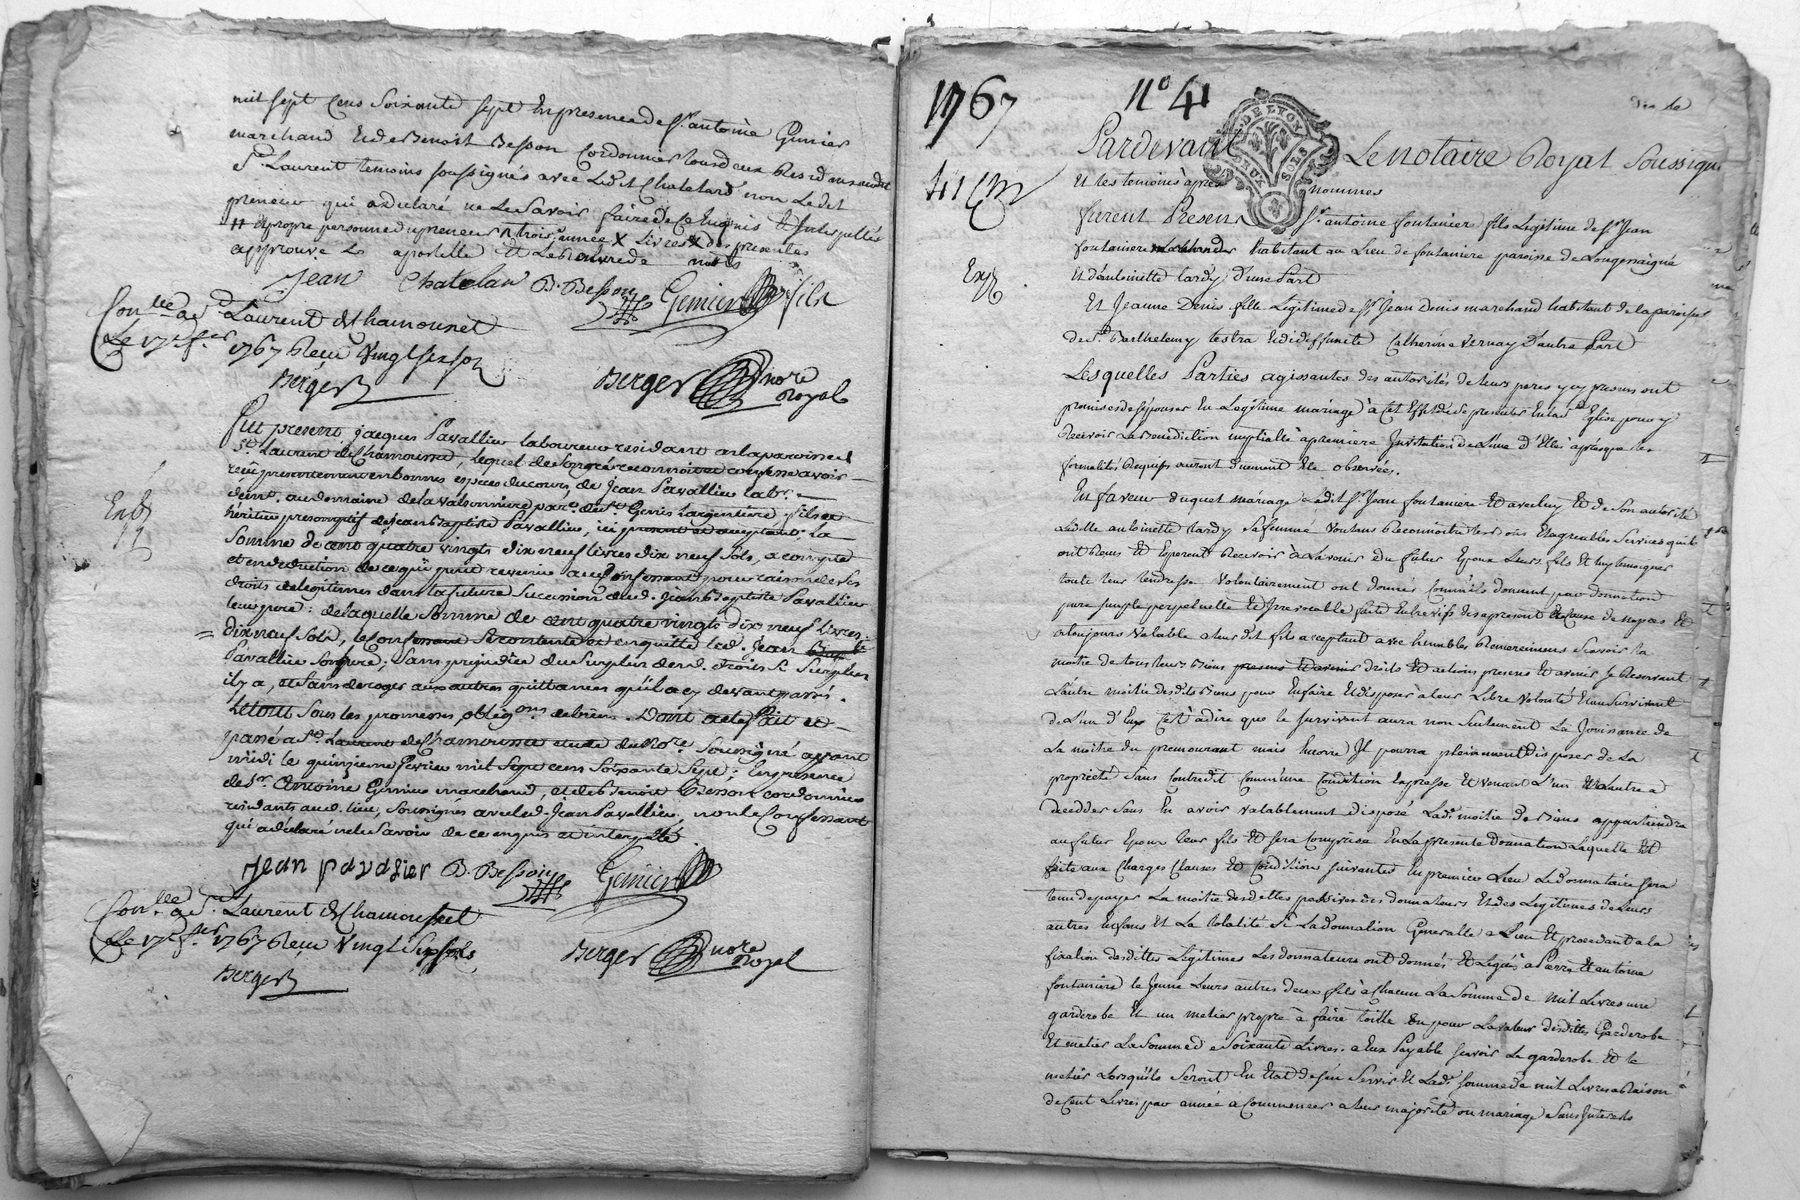 mil sept Cens Soixante sept En presence de Sr. antoine Genier
marchand Et de Benoit Besson Cordonnier tous deux Residants audit
St. Laurent temoins soussignés avec Ledit Chatelard non Ledit
preneur qui a declaré ne Le Savoir faire de ce Enquis Et Interpellés
propre personne du preneur trois année X Livres X des presentes
approuve La apostille Et Les mots
Jean Chatelar B. Besson Genier fils
Conlle a St. Laurent de Chamousset
Le 17e fer. 1767 Reçu Vingt six sols
Berger
Berger nore Royal
Fut present jacques Pavallier laboureur residant en la paroisse de
St. Laurent de Chamousset, lequel de son gré reconnoit et confesse avoir
reçu presentement en bonnes especes du cours, de Jean Pavallier labr.
demt. au domaine de la Valsonniere parr. de St. Genis Largentiere fils et
heritier presomptif de Jean Baptiste Pavallier, ici present et acceptant la
Somme de cent quatre vingts dix neuf livres dix neuf Sols, a compte
et en deduction de ce qui peut revenir au Confessant pour raison de ses
droits de legitimes dans la future Succession dud. Jean Baptiste Pavallier
leur pere : de laquelle Somme de cent quatre vingts dix neuf livres
dix neuf Sols, le Confessant Se contente et en quitte led. Jean
Pavallier Son frere ; Sans prejudice du Surplus desd. droits Si Surplus
il y a, et Sans deroger aux autres quittances qu'il a cy devant passés.
Le tout Sous les promesses obligons. de biens. Dont acte Fait et
passé a St. Laurent de Chamousset etude du Nore. Soussigné avant
midi le quinzieme fevrier mil Sept cens Soixante Sept ; En presence
de Sr. Antoine Genier marchand, et de Benoit Besson cordonnier
residants aud. lieu, Soussignés avec led. Jean Pavallier, non le Confessant
qui a declaré ne le Savoir de ce enquis et interpellé
Jean pavalier B. Besson Genier
Conlle a St. Laurent de Chamousset
Le 17e fer. 1767 Reçu Vingt six sols
Berger
Berger nore Royal
1767 No 41
Pardevant Le notaire Royal Soussigné
DE LYON
Et Les temoins après nommés
furent Presens Sr. antoine fontaniere fils Legitime de Sr. Jean
fontaniere habitant au Lieu de fontaniere paroisse de Longessaigne
Et d'antoinette tardy d'une Part
Et Jeanne Denis fille Legitime de Sr. Jean Denis marchand habitant de la paroisse
de St. Barthelemy Lestra Et de deffunte Catherine Vernay D'autre Part
Lesquelles Parties agissantes des autorités de leurs peres y presens ont
promises de s'epouser En Legitime mariage à Cet Effet de se presenter En la Ste. Eglise pour y
Recevoir La Benediction nuptialle à premiere Invitation de L'une d'Elles après que les
formalités Requises auront dument Eté observées.
En faveur duquel mariage Ledit Sr. Jean fontaniere Et avec luy Et de Son autorité
Ladite antoinette tardy Sa femme Voulans Reconnoitre les bons Et agreables Services qu'ils
ont Reçus Et Esperent Recevoir à L'avenir du futur Epoux Leurs fils Et luy temoigner
toute leur tendresse Volontairement ont donnés Comm'ils donnent par donnation
pure simple perpetuelle Et Irrevocable faite Entre vifs des apresent Et Cause de noces Et
a toujours Valable a leur dit fils acceptant avec humbles Remerciemens Scavoir la
moitié de tous leurs biens presens Et avenir droits Et actions presens Et avenir se Reservant
L'autre moitié desdits biens pour En faire Et disposer a leur Libre Volonté Et au Survivant
de L'un d'Eux C'est à dire que le Survivant aura non Seulement La Jouissance de
La moitié du premourant mais Encore Il pourra pleinement disposer de La
proprieté Sans Contredit Comm'une Condition Expresse Et Venant L'un Et L'autre a
deceder Sans En avoir valablement disposé Lade. moitié de Biens appartiendra
au futur Epoux leur fils Et Sera Comprise En La presente Donnation Laquelle Est
faite aux Charges Clauses Et Conditions suivantes En premier Lieu Le donnataire sera
tenu de payer La moitié des dettes passives des donnateurs Et des Legitimes de Leurs
autres Enfans Et La totalité Si La donnation Generalle a Lieu Et procedant a la
fixation desdittes Legitimes Les donnateurs ont donnés Et Legués a Pierre Et antoine
fontaniere le Jeune Leurs autres deux fils à Chacun La Somme de mil Livres une
garderobe Et un metier propre à faire toille Ou pour La valeur desdittes Garderobe
Et metier La Somme de Soixante Livres. a Eux Payable Savoir La garderobe Et le
metier Lorsqu'ils Seront En Etat de s'en Servir Et Lade. somme de mil Livres a Raison
de Cent Livres par année a Commencer a leur majorité ou mariage Sans Interets